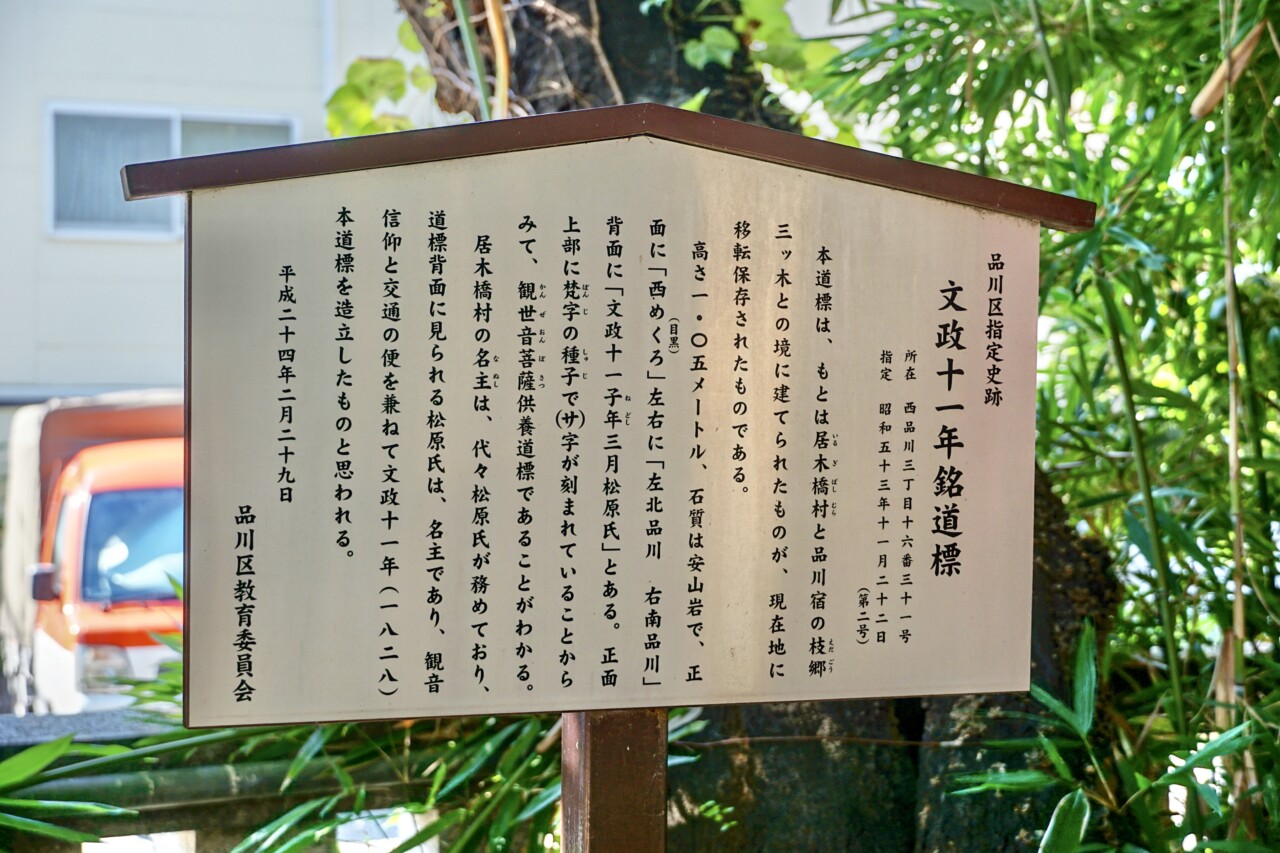 品川区指定史跡
文政十一年銘道標
所在　西品川三丁目十六番三十一号
指定　昭和五十三年十一月二十二日
（第二号）
本道標は、もとは居木橋村と品川宿の枝郷
いるぎばしむら
えだごう
三ッ木との境に建てられたものが、現在地に
移転保存されたものである。
高さ一・〇五メートル、石質は安山岩で、正
面に「西めくろ」左右に「左北品川　右南品川」
（目黒）
背面に「文政十一子年三月松原氏」とある。正面
ねどし
上部に梵字の種子で（サ）字が刻まれていることから
ぼんじ
しゅじ
みて、観世音菩薩供養道標であることがわかる。
かんぜおんぼさつ
居木橋村の名主は、代々松原氏が務めており、
なぬし
道標背面に見られる松原氏は、名主であり、観音
信仰と交通の便を兼ねて文政十一年（一八二八）
本道標を造立したものと思われる。
平成二十四年二月二十九日
品川区教育委員会